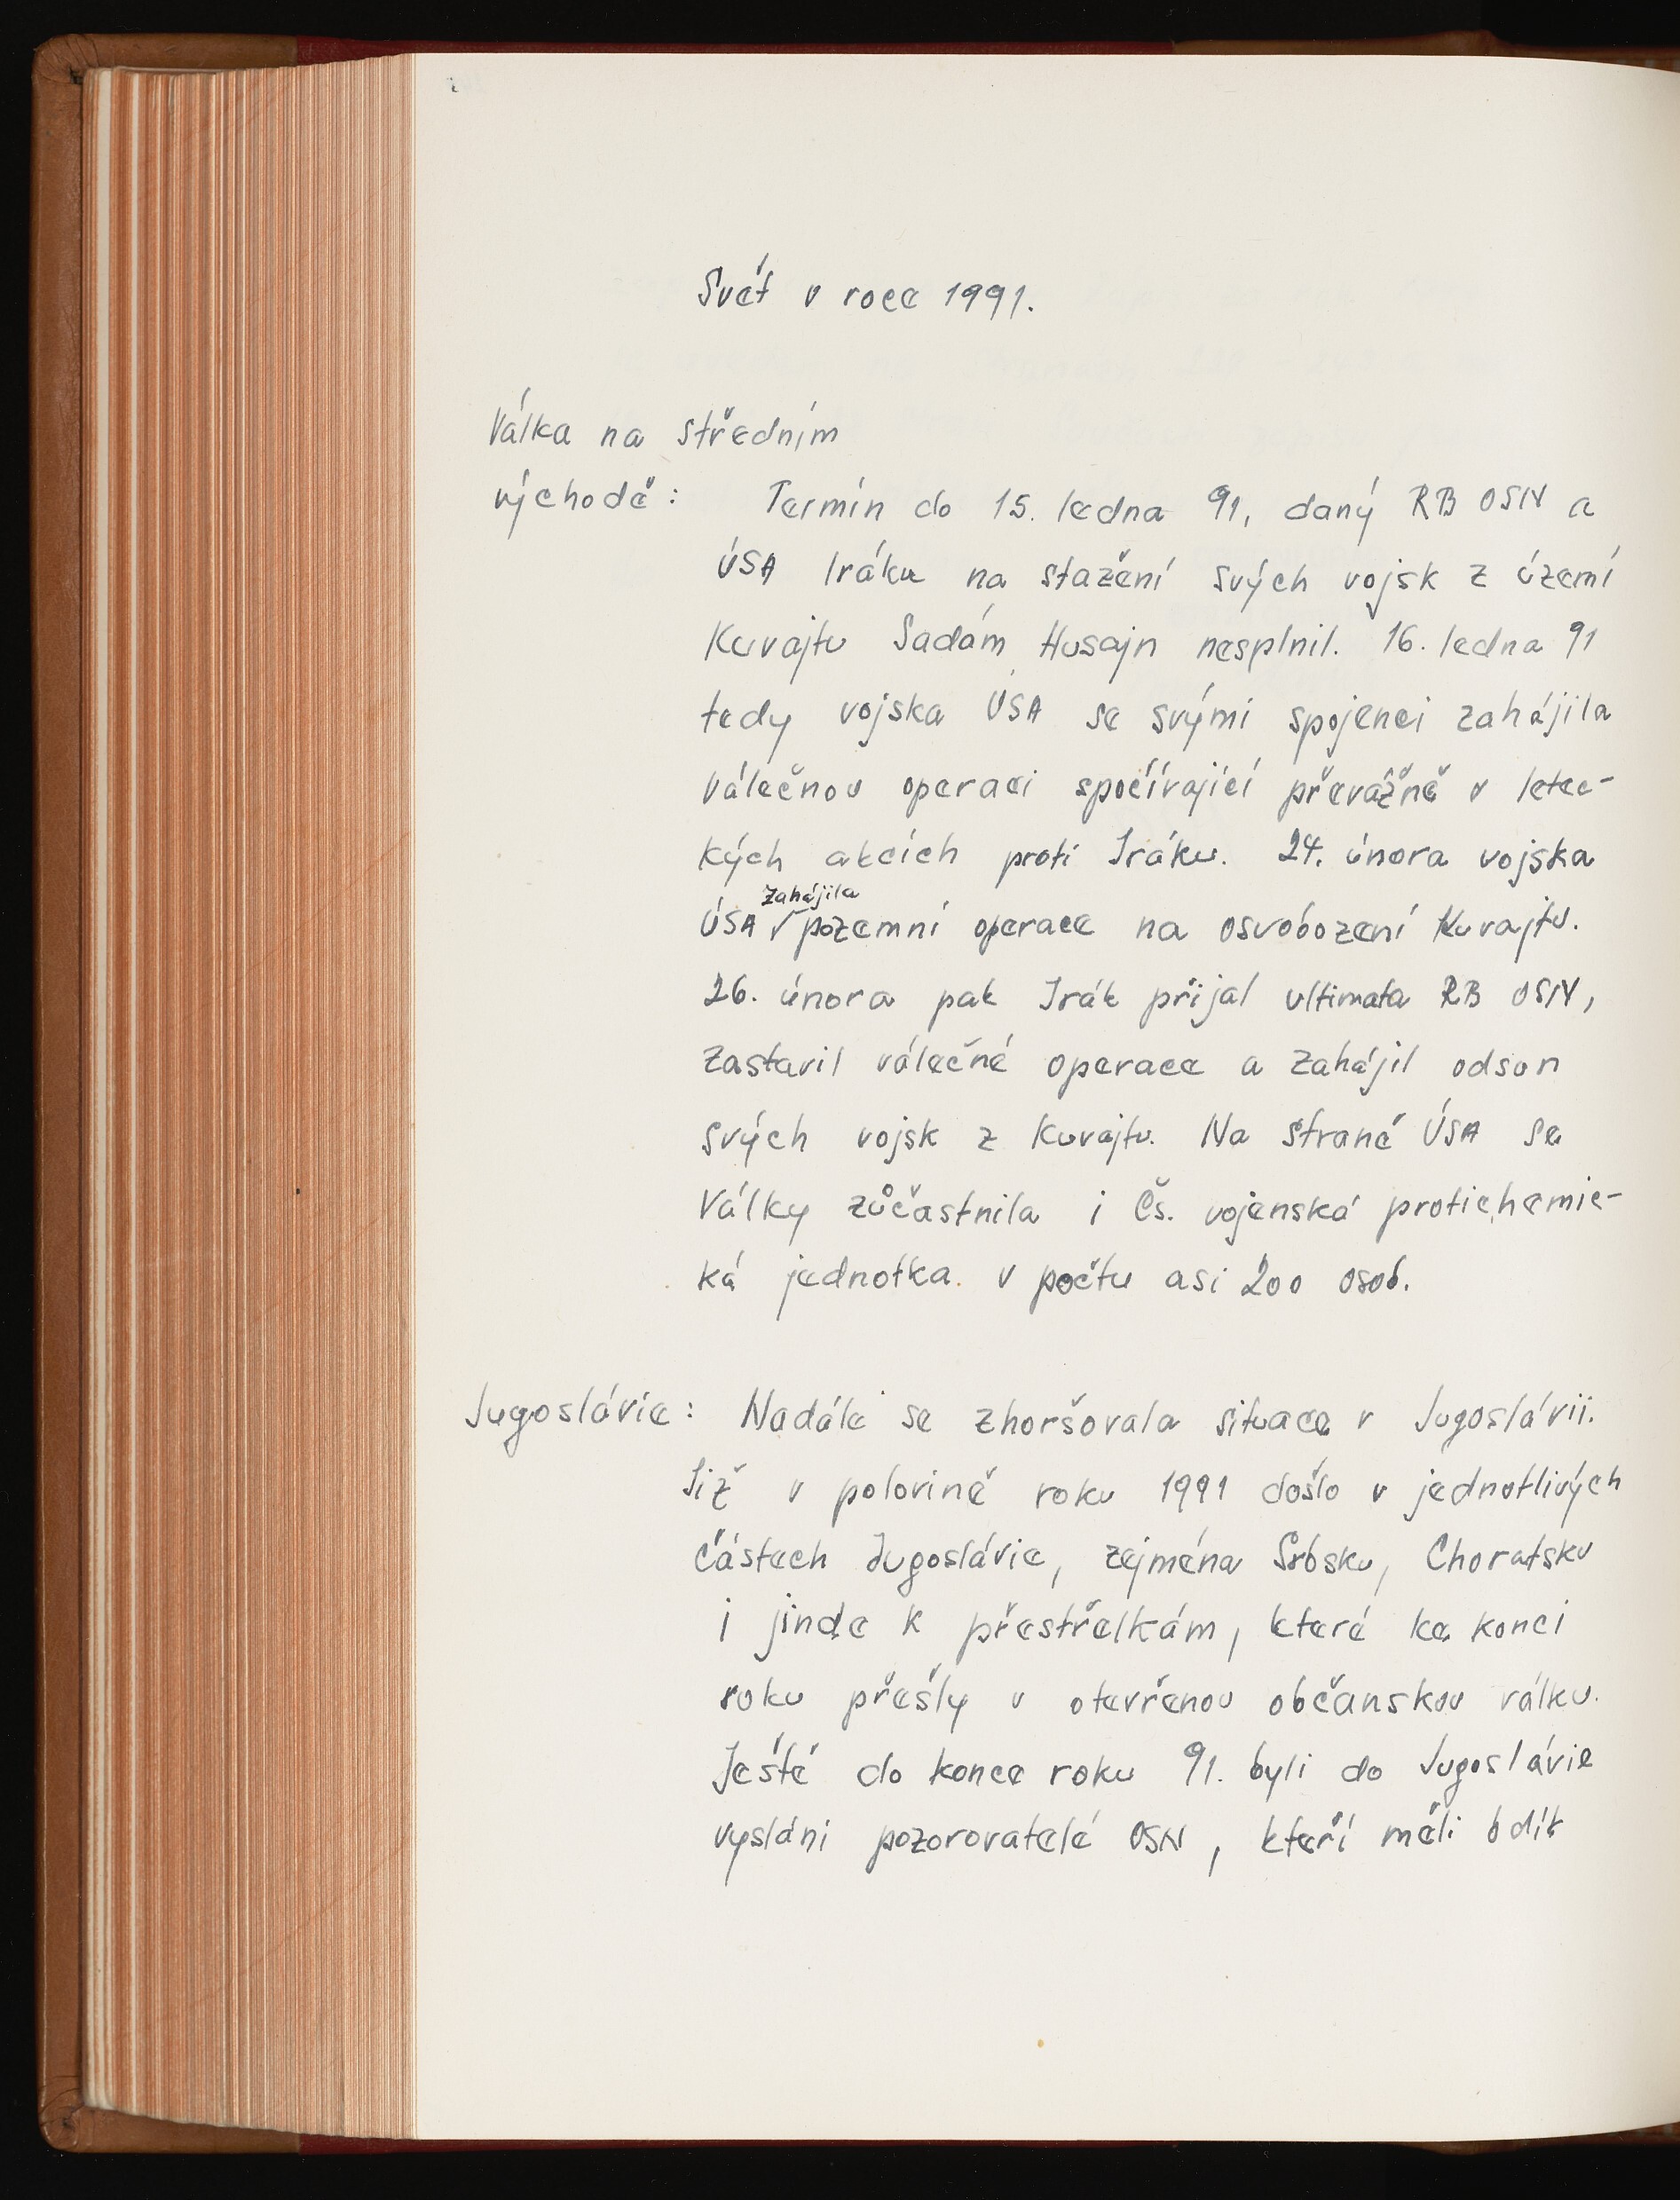 Svět v roce 1991.
Válka na středním
východě: Termín do 15. ledna 91, daný RB OSN a
ÚSA Iráku na stažení svých vojsk z území
Kuvajtu Sadám Husajn nesplnil. 16. ledna 91
tedy vojska ÚSA se svými spojenci zahájila
válečnou operaci spočívající převážně v letec-
kých akcích proti Iráku. 24. února vojska
zahájila
ÚSA √ pozemní operace na osvobození Kuvajtu.
26. února pak Irák přijal ultimata RB OSN,
zastavil válečné operace a zahájil odsun
svých vojsk z Kuvajtu. Na straně ÚSA se
války zůčastnila i Čs. vojenská protichemic-
ká jednotka v počtu asi 200 osob.
Jugoslávie: Nadále se zhoršovala situace v Jugoslávii.
Již v polovině roku 1991 došlo v jednotlivých
částech Jugoslávie, zejména Srbsku, Choratsku
i jinde k přestřelkám, které ke konci
roku přešly v otevřenou občanskou válku.
Ještě do konce roku 91. byli do Jugoslávie
vysláni pozorovatelé OSN, kteří měli bdít